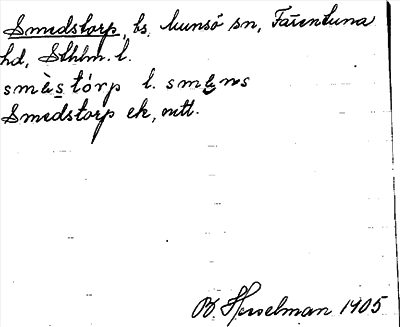 Smedstorp, bs. Munsö sn, Färentuna
hd, Sthlm. l.
smà̀s tórp l. smens
Smedstorp ek, mtl.
Hesselman 1905